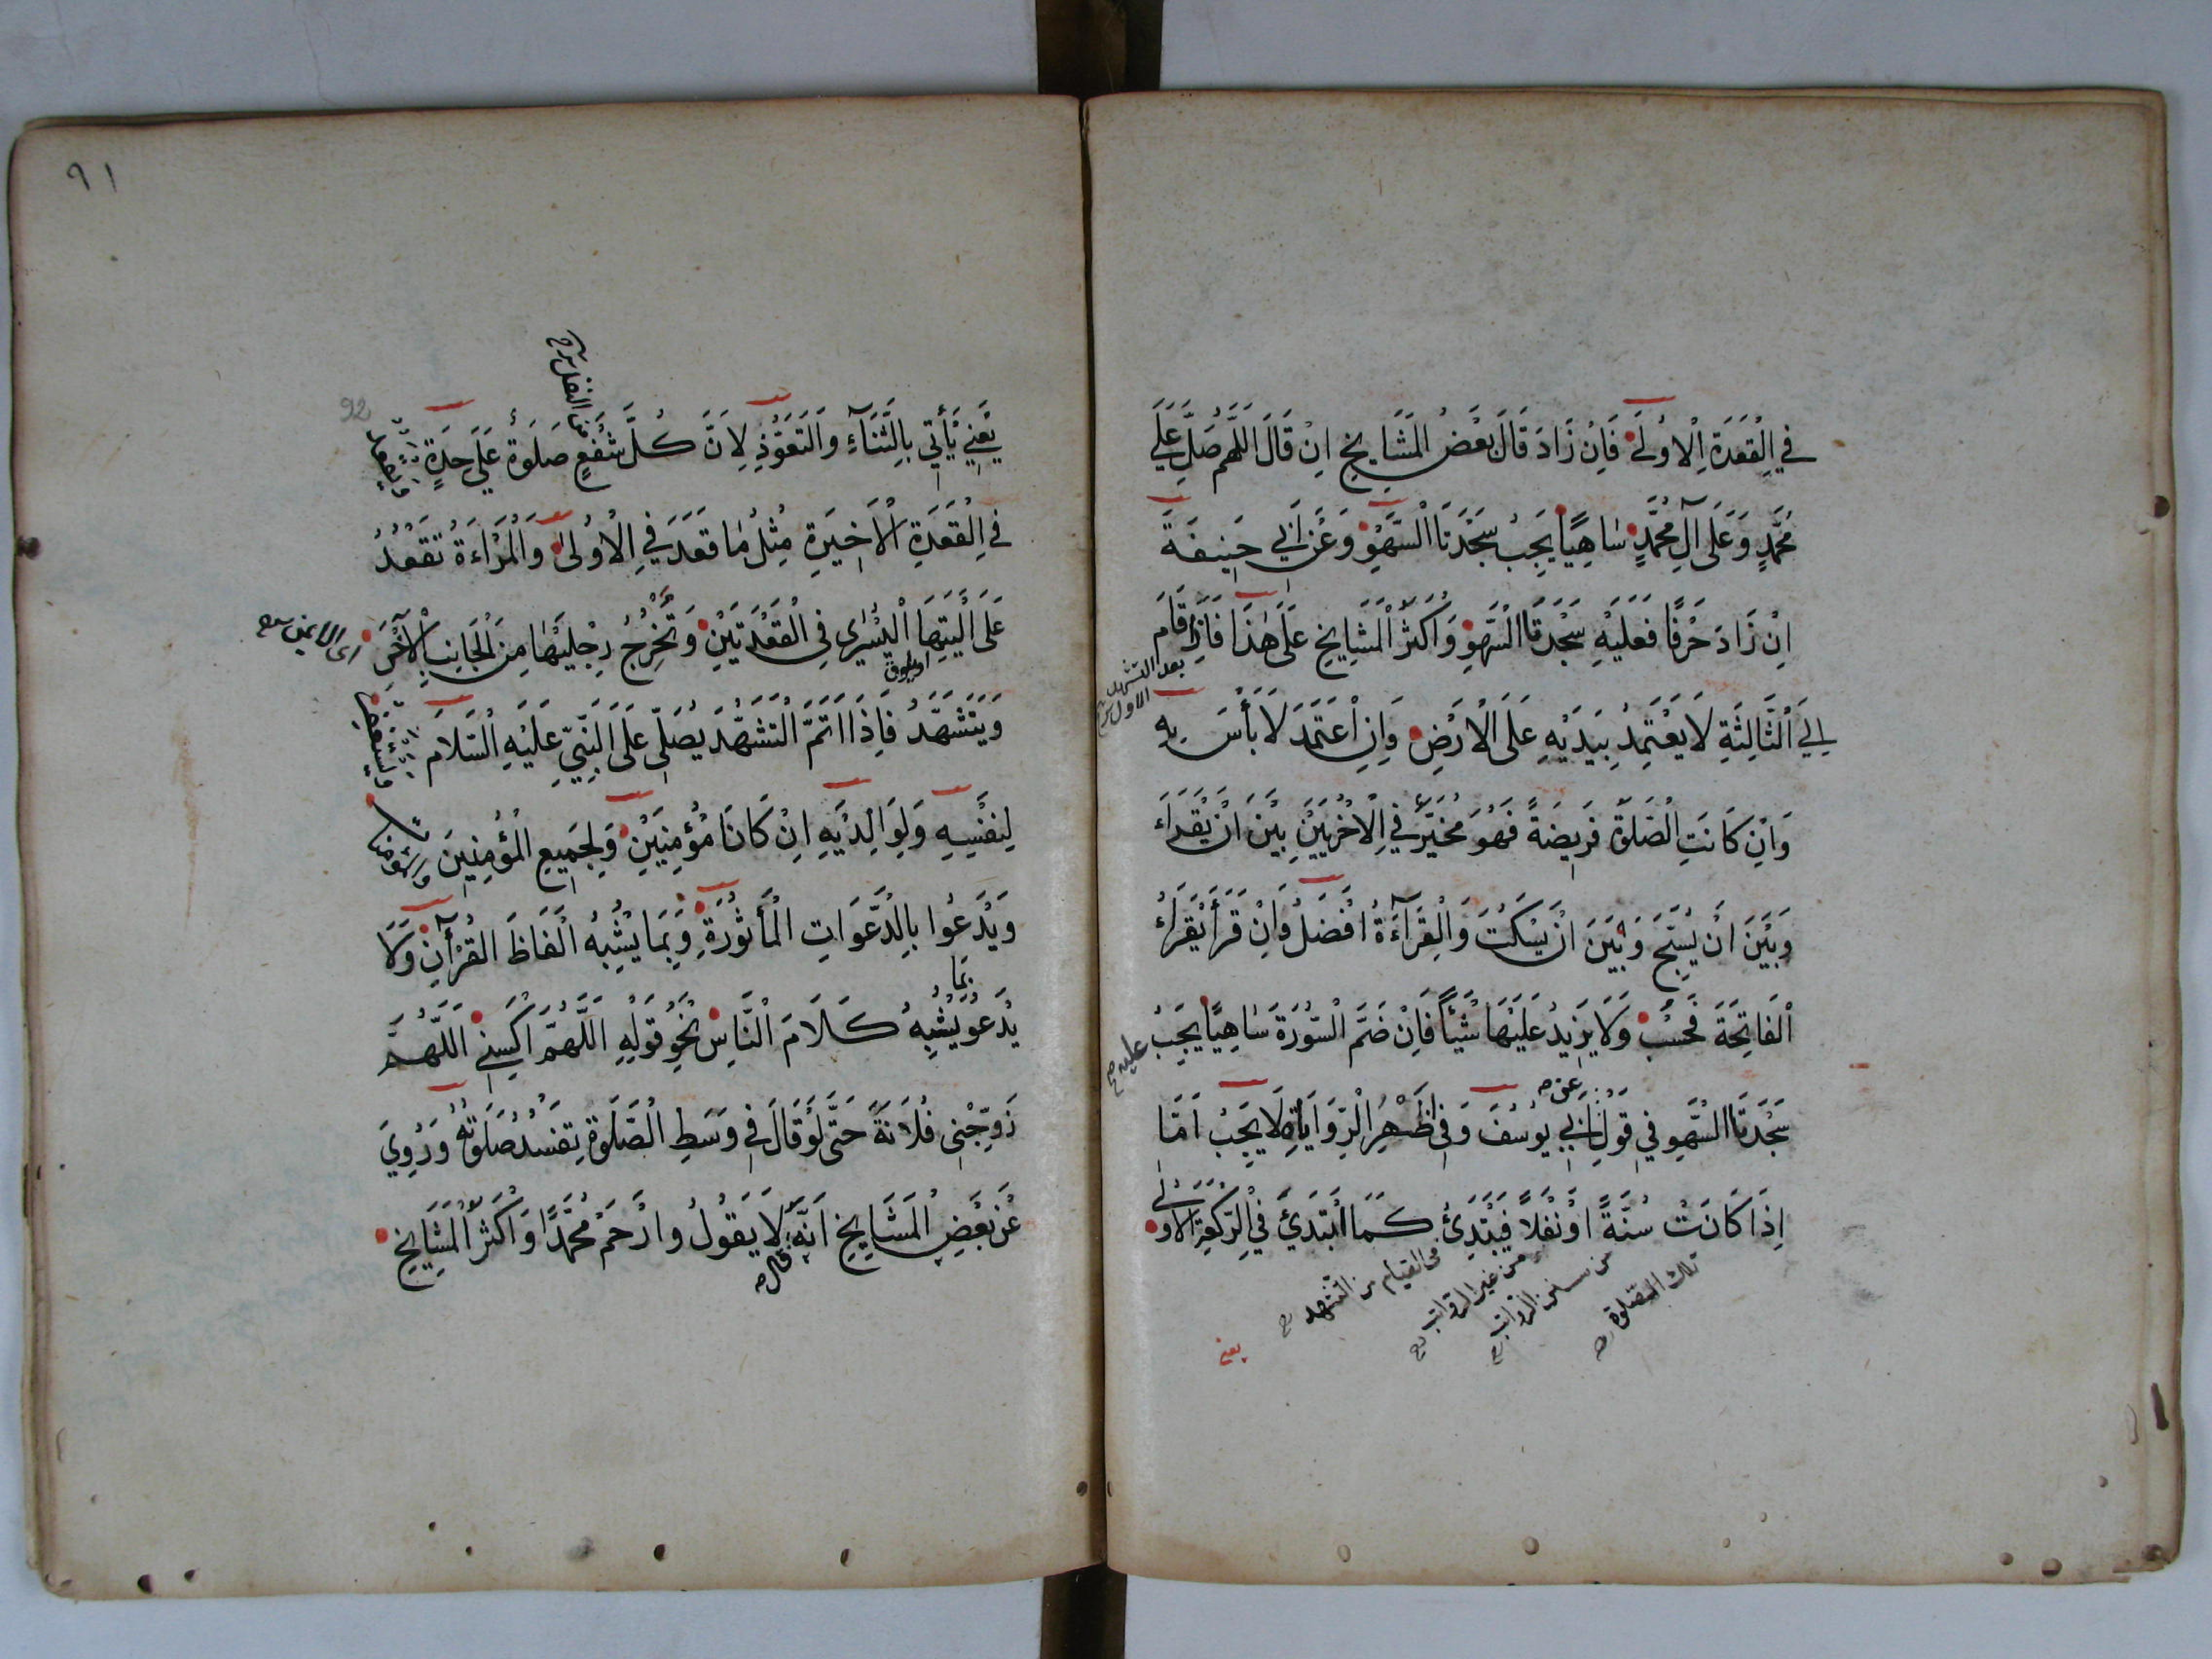 في القعدة الاولى فان زاد قال بعض المشايخ ان قال اللهم صل على
محمد وعلى آل محمد ساهيا يجب سجدتا السهو وعن ابي حنيفة
ان زاد حرفا فعليه سجدتا السهو واكثر المشايخ على هذا فاذا قام
بعد التشهد
الاول
الي الثالثة لا يعتمد بيديه على الارض وان اعتمد لا بأس به
وان كانت الصلوة فريضة فهو مخير في الاخريين بين ان يقراء
وبين ان يسبح وبين ان يسكت والقرآءة افضل وان قرأ يقراء
الفاتحة فحسب ولا يزيد عليها شيأ فان ضم السورة ساهيا يجب
عليه
سجدتا السهو في قول ابي يوسف وفي اظهر الرواية لا يجب اما
اذا كانت سنة او نفلا فيبتدئ كما ابتدئ في الركعة الاولى
تلك الصلوة
من سنن الرواتب
من غير الرواتب
في القيام من التشهد
يعني
٩١
92
يعني يأتي بالثنآء والتعوذ لان كل شفع صلوة على حدة
من النفل
في القعدة الاخيرة مثل ما قعد في الاولى والمراءة تقعد
على اليتها اليسرى في القعدتين وتخرج رجليها من الجانب الآخر
اى الايمن
ويتشهد فاذا اتم التشهد يصلى على النبي عليه السلام
ويستغفر
لنفسه ولوالديه ان كانا مؤمنين ولجميع المؤمنين
ويدعوا بالدعوات المأثورة وبما يشبه الفاظ القرآن ولا
بما
يدعو يشبه كلام الناس نحو قوله اللهم اكسني اللهم
زوجني فلانة حتى لو قال في وسط الصلوة تفسد صلوته وروي
عن بعض المشايخ انه لا يقول وارحم محمدا واكثر المشايخ
قال